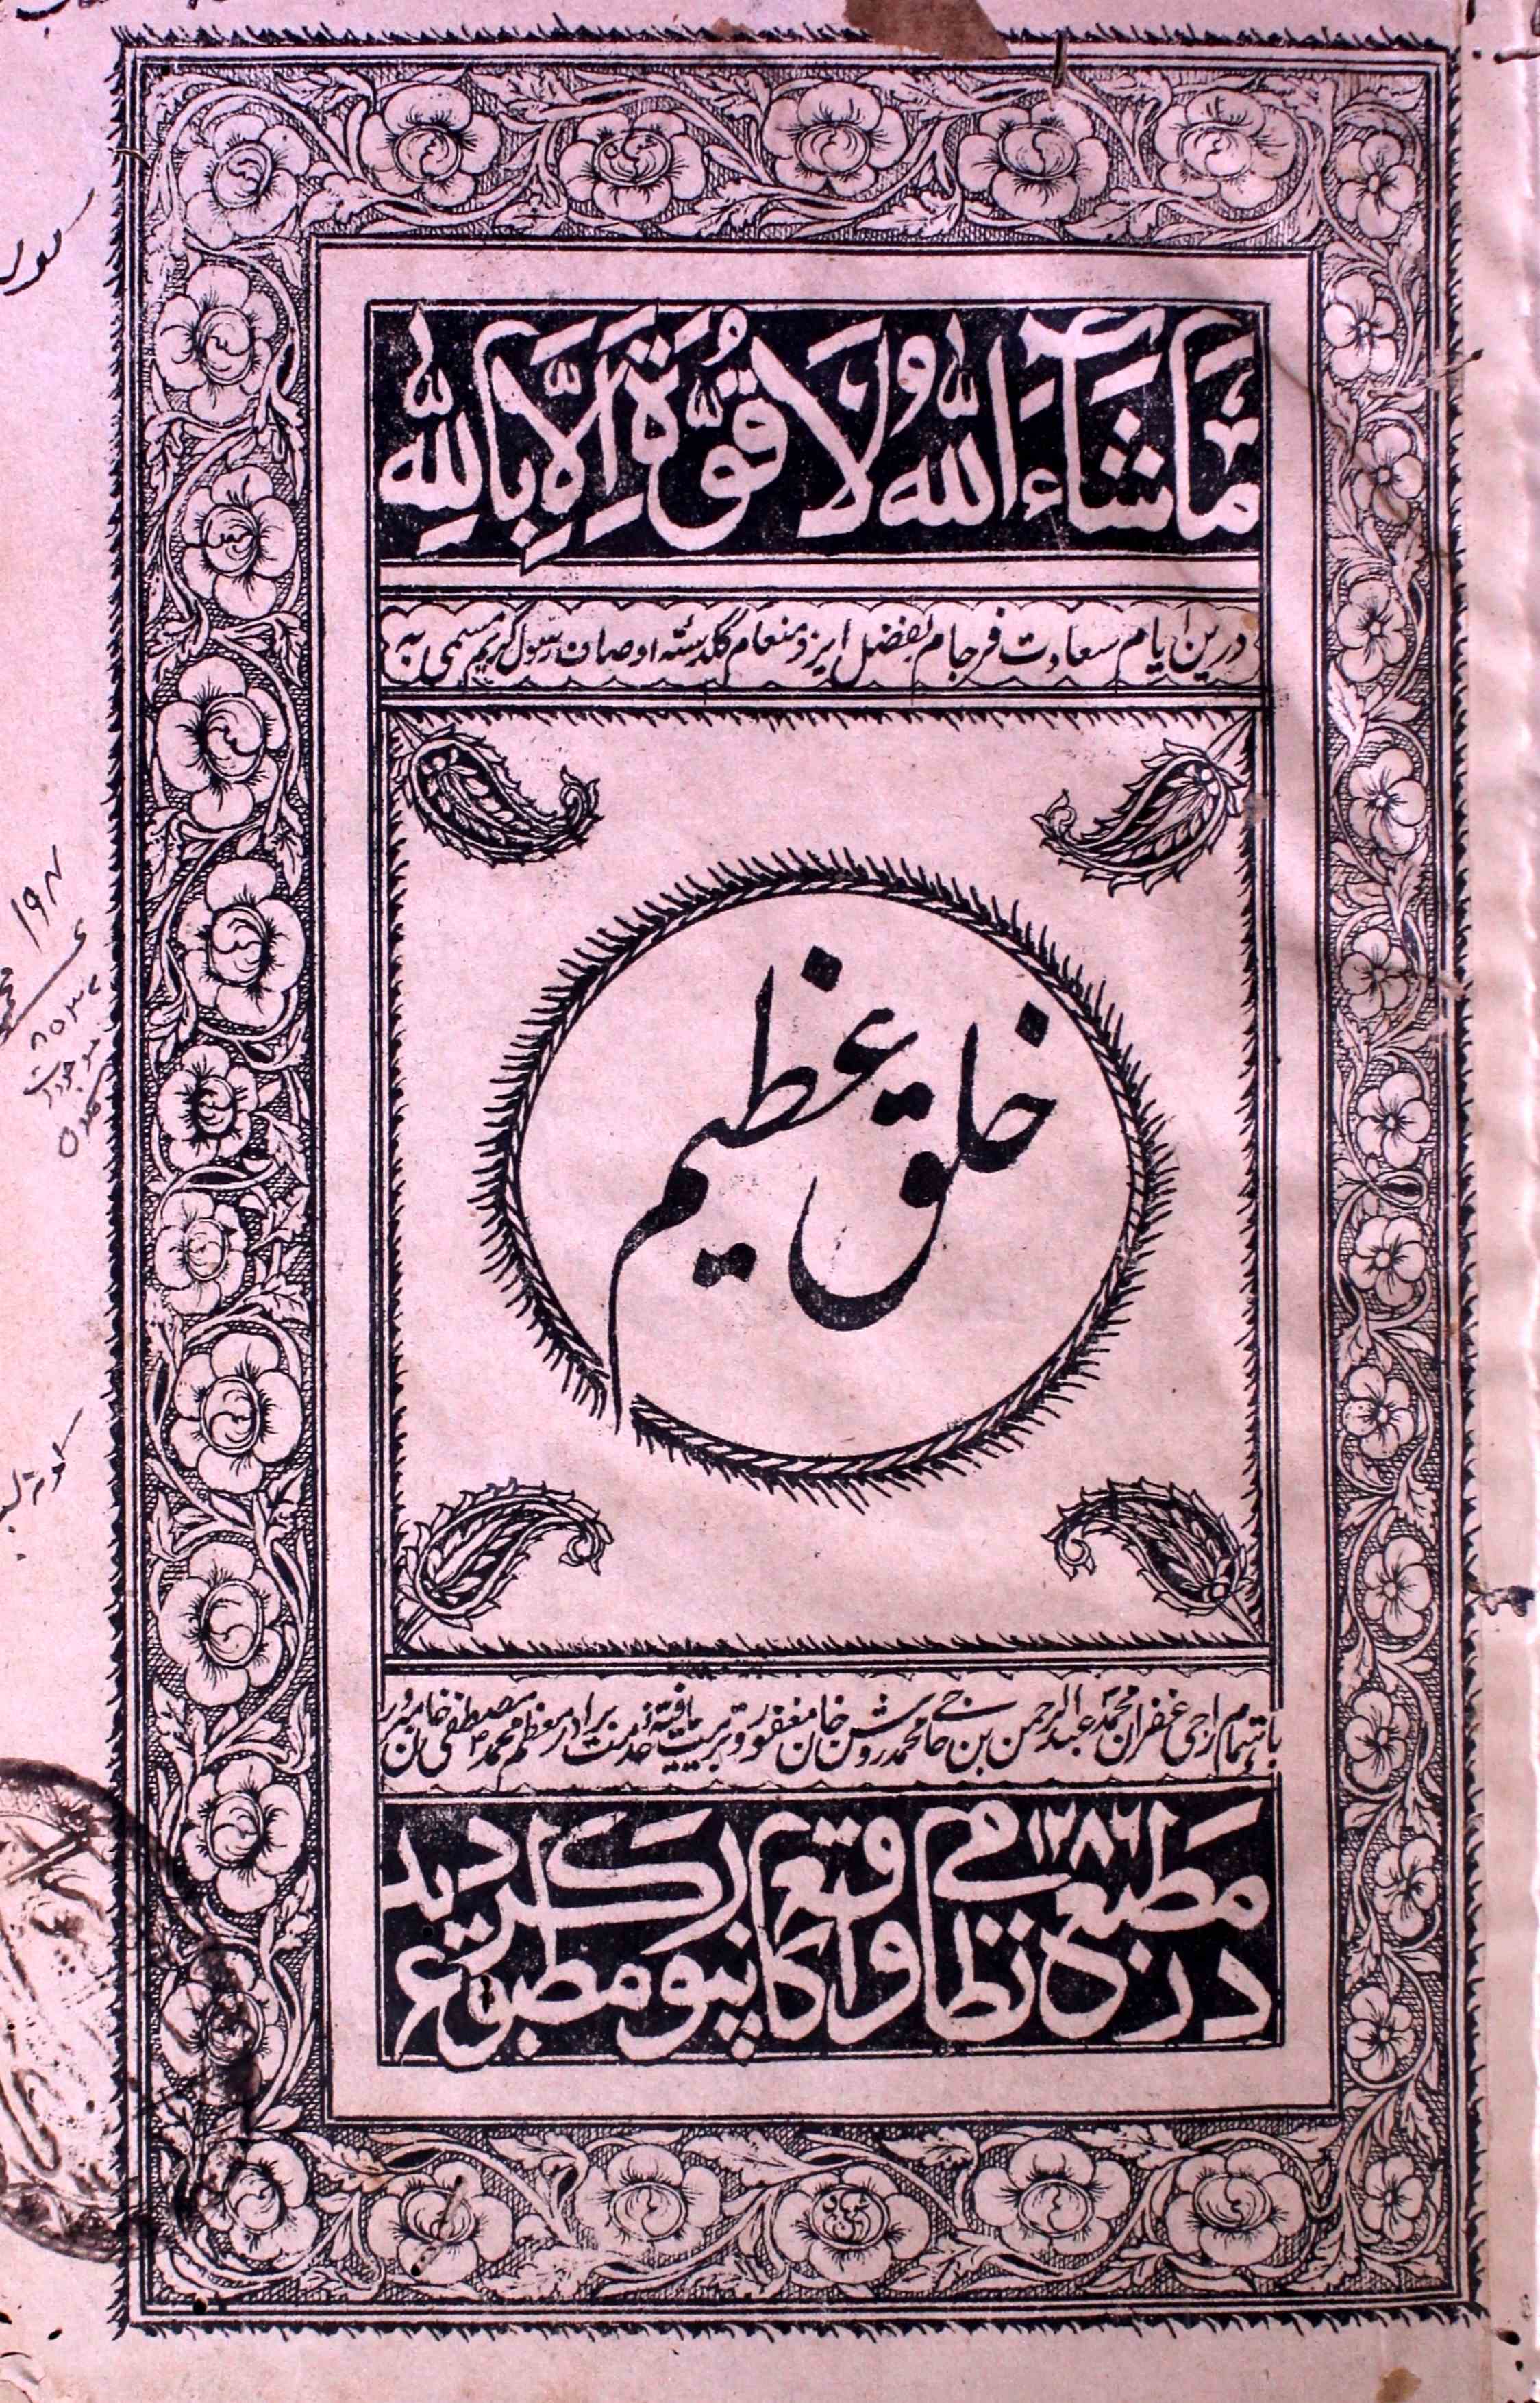 مَا شَاءَ اللّٰهُ وَلَا قُوَّةَ اِلَّا بِاللّٰهِ
درین ایام سعادت فرجام بفضل ایزد منعام گلدستۂ اوصاف رسول کریم مسمی به
خلق عظیم
باہتمام راجی غفران محمد عبدالرحمن بن حاجی محمد روشن خان مغفور و تربیت یافتۂ خدمت برادر معظم محمد مصطفی خان مبرور
در مطبع نظامی واقع کانپور
مطبوع گردید
۱۹۸
۸۵۳۷